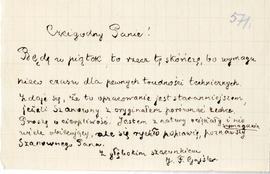 571.
Czcigodny Panie!
Będę w piątek to rzecz tę skończę, bo wymaga
nieco czasu dla pewnych trudności technicznych
Zdaje się, że to opracowanie jest staranniejszem,
jeżeli Szanowny z oryginałem porównać zechce
Proszę o cierpliwość. Jestem z natury
wymagania
wiele obiecujący, ale się rychło poprawię, poznawszy
Szanownego Pana.
Z głębokim szacunkiem